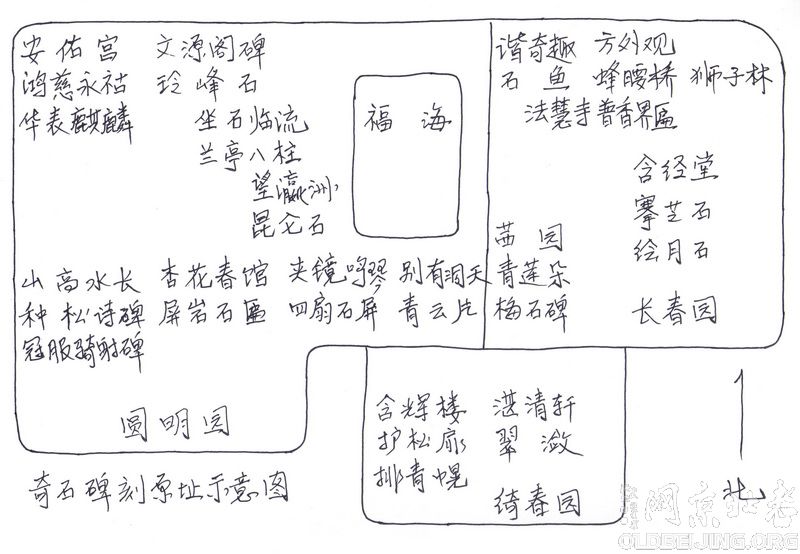 安佑宫 文源阁碑
鸿慈永祜 玲峰石
华表麒麟 坐石临流
兰亭八柱
望瀛洲
昆仑石
福海
谐奇趣 方外观
石鱼 蜂腰桥 狮子林
法慧寺普香界匾
含经堂
搴芝石
绘月石
长春园
茜园
青莲朵
梅石碑
山高水长 杏花春馆 夹镜鸣琴 别有洞天
种松诗碑 屏岩石匾 四扇石屏 青云片
冠服骑射碑
圆明园
含辉楼 湛清轩
护松扉 翠潋
排青幌
绮春园
北
奇石碑刻原址示意图
OLDBEIJING.ORG